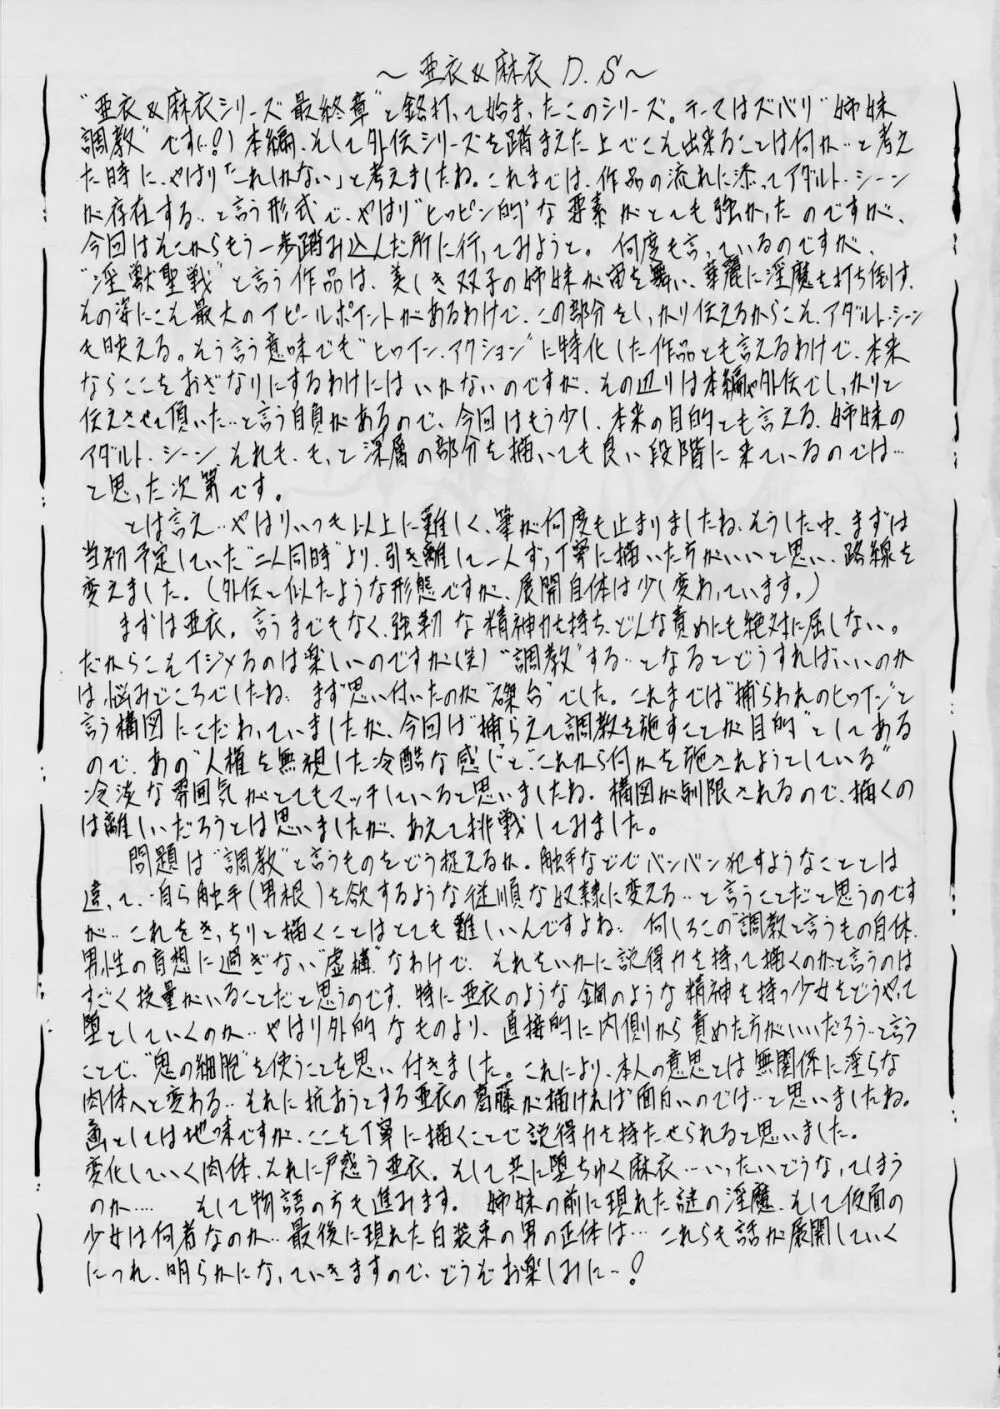 ～亜衣&麻衣 D.S～
"亜衣&麻衣シリーズ 最終章"と銘打って始まったこのシリーズ。テーマはズバリ"姉妹
調教"です(!?) 本編、そして外伝シリーズを踏まえた上でこそ出来ることは何か…と考え
た時に、やはり「これしかない」と考えましたね。これまでは、作品の流れに添ってアダルト・シーン
が存在する…と言う形式で、やはり"ヒロピン的"な要素がとても強かったのですが、
今回はそこからもう一歩踏み込んだ所に行ってみようと。何度も言っているのですが、
"淫獣聖戦"と言う作品は、美しき双子の姉妹が宙を舞い、華麗に淫魔を打ち倒す、
その姿にこそ最大のアピールポイントがあるわけで、この部分をしっかり伝えるからこそ、アダルト・シーン
も映える。そう言う意味でも"ヒロイン・アクション"に特化した作品とも言えるわけで、本来
ならここをおざなりにするわけにはいかないのですが、その辺りは本編や外伝でしっかりと
伝えさせて頂いた…と言う自負があるので、今回はもう少し、本来の目的とも言える、姉妹の
アダルト・シーン、それも、もっと深層の部分を描いても良い段階に来ているのでは…
と思った次第です。
とは言え…やはりいつも以上に難しく、筆が何度も止まりましたね、そうした中、まずは
当初予定していた"二人同時"より、引き離して一人ずつ丁寧に描いた方がいいと思い、路線を
変えました。(外伝と似たような形態ですが、展開自体は少し変わっています。)
まずは亜衣。言うまでもなく、強靭な精神力を持ち、どんな責めにも絶対に屈しない。
だからこそイジメるのは楽しいのですが(笑)"調教"する…となるとどうすればいいのか
は悩みどころでしたね、まず思い付いたのが"磔台"でした。これまでは"捕らわれのヒロイン"と
言う構図にこだわっていましたが、今回は"捕らえて調教を施すことが目的"としてある
ので、あの"人権を無視した冷酷な感じ"と"これから何かを施されようとしている"
冷淡な雰囲気がとてもマッチしていると思いましたね。構図が制限されるので、描くの
は難しいだろうとは思いましたが、あえて挑戦してみました。
問題は"調教"と言うものをどう捉えるか。触手などでバンバン犯すようなこととは
違って、自ら触手(男根)を欲するような従順な奴隷に変える…と言うことだと思うのです
が…これをきっちりと描くことはとても難しいんですよね。何しろこの"調教"と言うもの自体、
男性の盲想に過ぎない"虚構"なわけで、それをいかに説得力を持って描くのかと言うのは
すごく技量がいることだと思うのです。特に亜衣のような鋼のような精神を持つ少女をどうやって
堕としていくのか…やはり外的なものより、直接的に内側から責めた方がいいだろう…と言う
ことで、"鬼の細胞"を使うことを思い付きました。これにより、本人の意思とは無関係に淫らな
肉体へと変わる…それに抗おうとする亜衣の葛藤が描ければ面白いのでは…と思いましたね。
画としては地味ですが、ここを丁寧に描くことで説得力を持たせられると思いました。
変化していく肉体、それに戸惑う亜衣。そして共に堕ちゆく麻衣…いったいどうなってしまう
のか…. そして物語の方も進みます。姉妹の前に現れた謎の淫魔、そして仮面の
少女は何者なのか…最後に現れた白装束の男の正体は… これらも話が展開していく
につれ、明らかになっていきますので、どうぞお楽しみに～!